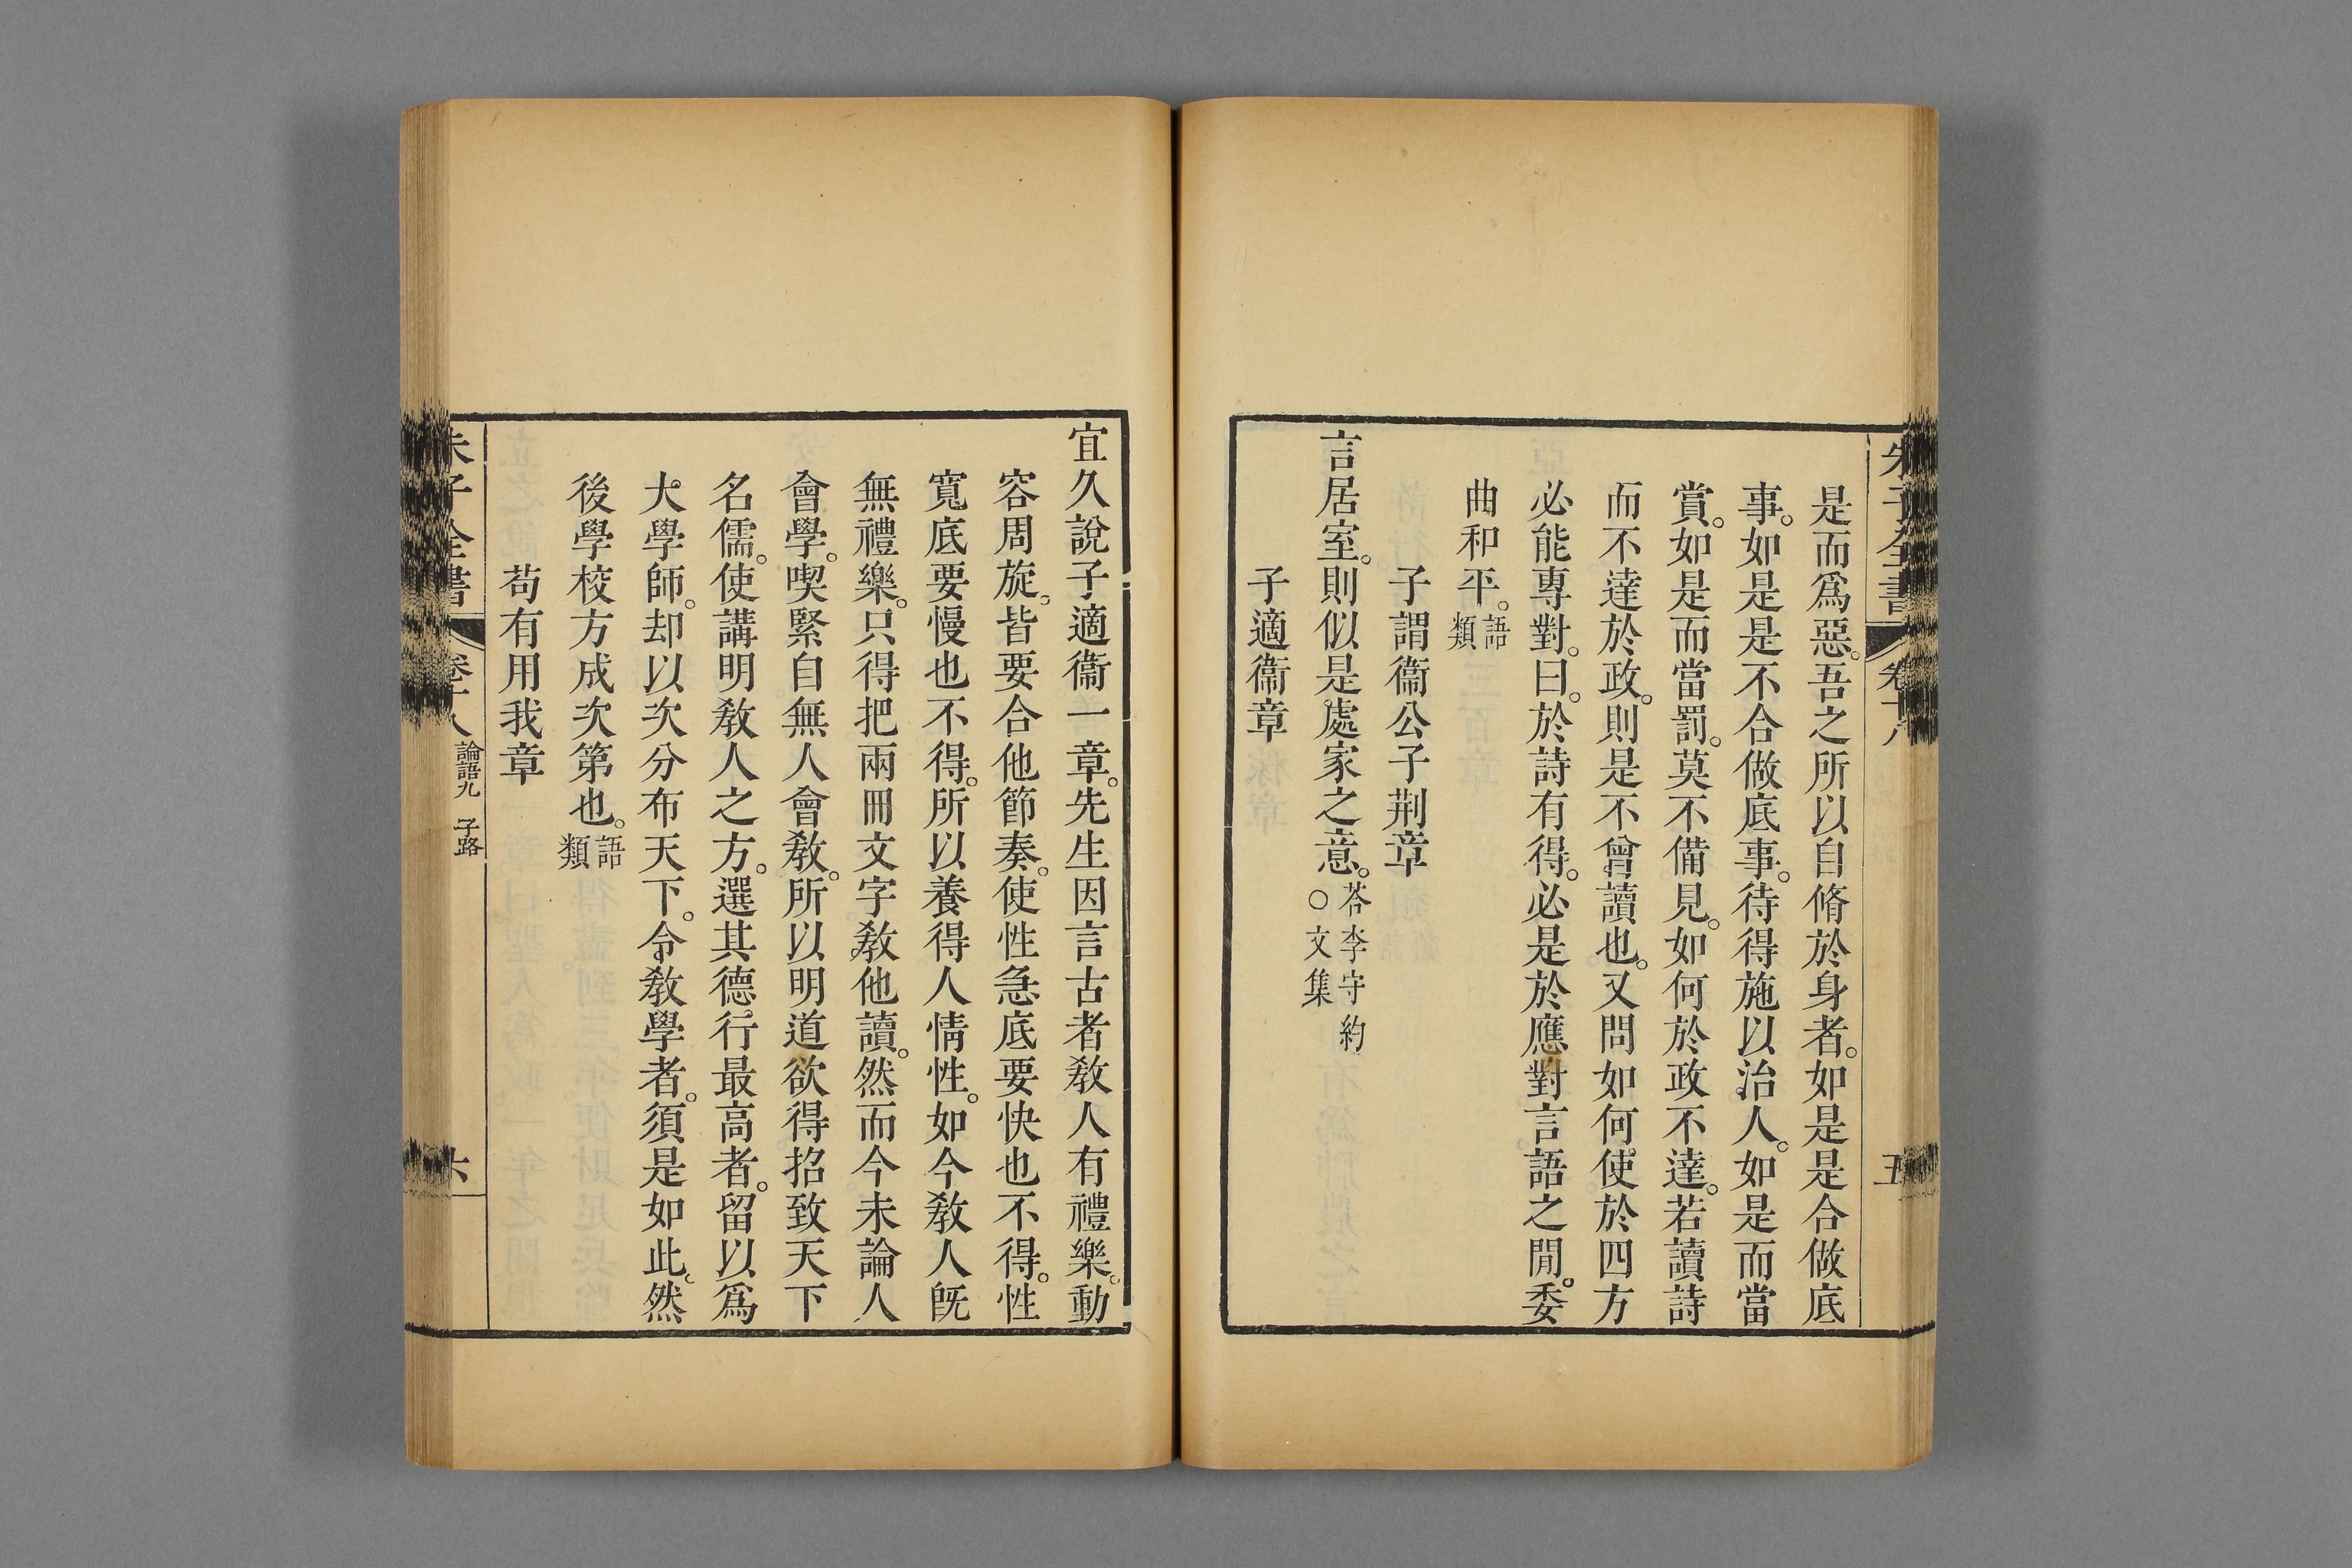 朱子全書 卷十八 五
是而爲惡。吾之所以自脩於身者。如是是合做底
事。如是是不合做底事。待得施以治人。如是而當
賞。如是而當罰。莫不備見。如何於政不達。若讀詩
而不達於政。則是不曾讀也。又問如何使於四方
必能專對。曰。於詩有得。必是於應對言語之閒。委
曲和平。語類
子謂衞公子荆章
言居室。則似是處家之意。荅李守約○文集
子適衞章
宜久說子適衞一章。先生因言古者敎人有禮樂。動
容周旋。皆要合他節奏。使性急底要快也不得。性
寬底要慢也不得。所以養得人情性。如今敎人旣
無禮樂。只得把兩冊文字敎他讀。然而今未論人
會學。喫緊自無人會敎。所以明道欲得招致天下
名儒。使講明敎人之方。選其德行最高者。留以爲
大學師。却以次分布天下。令敎學者。須是如此。然
後學校方成次第也。語類
苟有用我章
朱子全書 卷十八 論語九 子路 六